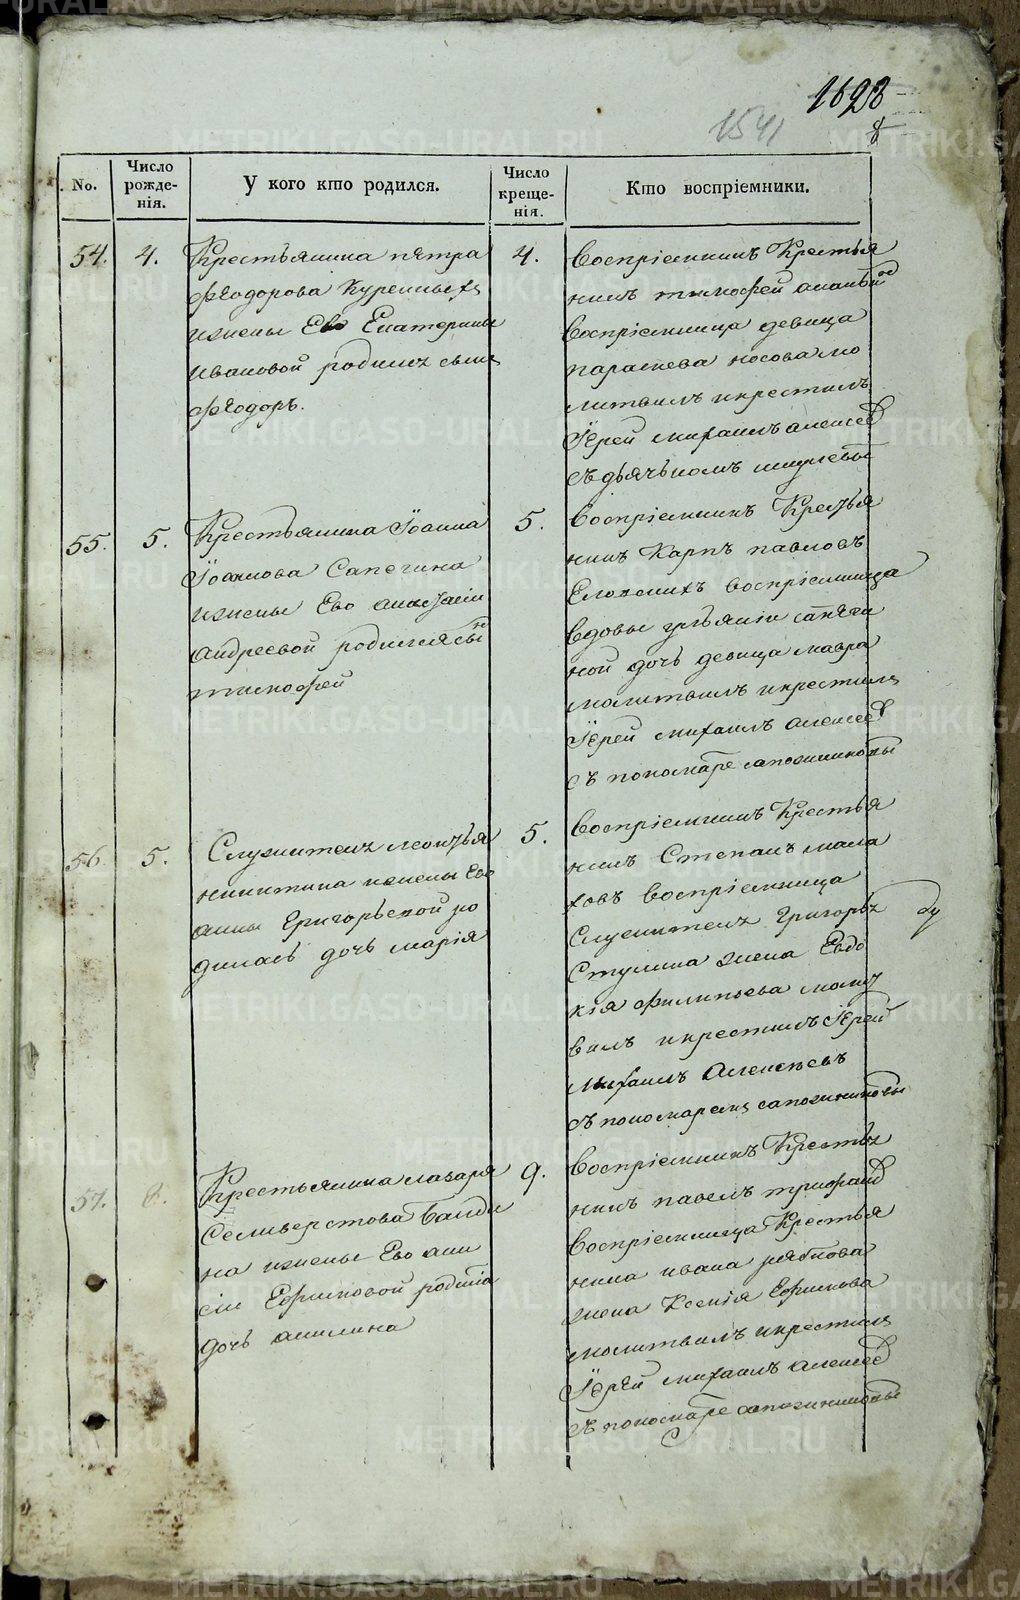 1628
1541
No.
Число рожде-нія.
У кого кто родился.
Число креще-нія.
Кто воспріемники.
54.
4.
Крестьянина петра
Феодорова Куренныхъ
изжены Ево Екатерины
ивановой родилъ сынъ
Феодоръ.
4.
Воспріемникъ Крестья
нинъ тимофей
Воспріемница девица
параскева носова мо
литвилъ икрестилъ
Іерей михаилъ алексеев
съ дьячькомъ
55.
5.
Крестьянина Іоанна
Іоаннова Сапегина
изжены Ево анастасіи
андреевой родился сынъ
тимофей
5.
воспріемникъ Крестья
нинъ Карпъ павловъ
воспріемница
вдовы
ной дочь девица мавра
молитвилъ икрестилъ
Іерей михаилъ алексеев
съ пономаре сапожниковы
56.
5.
Служителя леонтья
никитина изжены Ево
анны Григорьевой ро
дилась дочь марія
5.
Воспріемникъ Крестья
нинъ Степанъ мала
ховъ Воспріемница
Служителя Григорья
Стулина жена Евдо
кія филипьева молит
вилъ икрестилъ Іерей
михаилъ Алексеевъ
съ пономаремъ сапожниковы
57.
8.
Крестьянина лазаря
Селиверстова Банди
на изжены Ево ани
сіи Ефимовой родила
дочь акилина
9.
Воспріемникъ Крестья
нинъ павелъ трифанов
Воспріемница Крестья
нина ивана рябкова
жена Ксенія Ефимова
молитвилъ икрестилъ
Іерей михаилъ алексеев
съ пономаре сапожниковы
METRIKI.GASO-URAL.RU